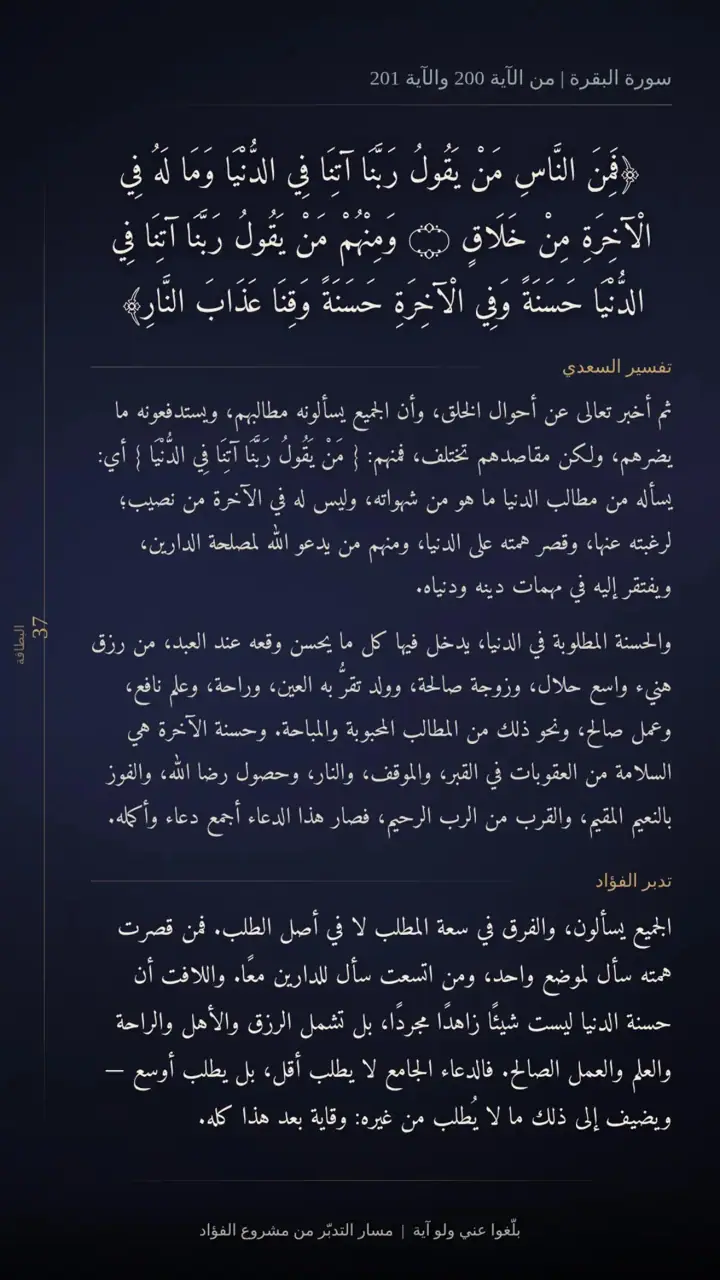 سورة البقرة | من الآية 200 والآية 201
﴿فَمِنَ النَّاسِ مَنْ يَقُولُ رَبَّنَا آتِنَا فِي الدُّنْيَا وَمَا لَهُ فِي
الْآخِرَةِ مِنْ خَلَاقٍ ۝ وَمِنْهُمْ مَنْ يَقُولُ رَبَّنَا آتِنَا فِي
الدُّنْيَا حَسَنَةً وَفِي الْآخِرَةِ حَسَنَةً وَقِنَا عَذَابَ النَّارِ﴾
تفسير السعدي
ثم أخبر تعالى عن أحوال الخلق، وأن الجميع يسألونه مطالبهم، ويستدفعونه ما
يضرهم، ولكن مقاصدهم تختلف، فمنهم: { مَنْ يَقُولُ رَبَّنَا آتِنَا فِي الدُّنْيَا } أي:
يسأله من مطالب الدنيا ما هو من شهواته، وليس له في الآخرة من نصيب؛
لرغبته عنها، وقصر همته على الدنيا، ومنهم من يدعو الله لمصلحة الدارين،
ويفتقر إليه في مهمات دينه ودنياه.
والحسنة المطلوبة في الدنيا، يدخل فيها كل ما يحسن وقعه عند العبد، من رزق
هنيء واسع حلال، وزوجة صالحة، وولد تقرُّ به العين، وراحة، وعلم نافع،
وعمل صالح، ونحو ذلك من المطالب المحبوبة والمباحة. وحسنة الآخرة هي
السلامة من العقوبات في القبر، والموقف، والنار، وحصول رضا الله، والفوز
بالنعيم المقيم، والقرب من الرب الرحيم، فصار هذا الدعاء أجمع دعاء وأكمله.
البطاقة
37
تدبر الفؤاد
الجميع يسألون، والفرق في سعة المطلب لا في أصل الطلب. فمن قصرت
همته سأل لموضع واحد، ومن اتسعت سأل للدارين معًا. واللافت أن
حسنة الدنيا ليست شيئًا زاهدًا مجردًا، بل تشمل الرزق والأهل والراحة
والعلم والعمل الصالح. فالدعاء الجامع لا يطلب أقل، بل يطلب أوسع —
ويضيف إلى ذلك ما لا يُطلب من غيره: وقاية بعد هذا كله.
بلّغوا عني ولو آية | مسار التدبّر من مشروع الفؤاد